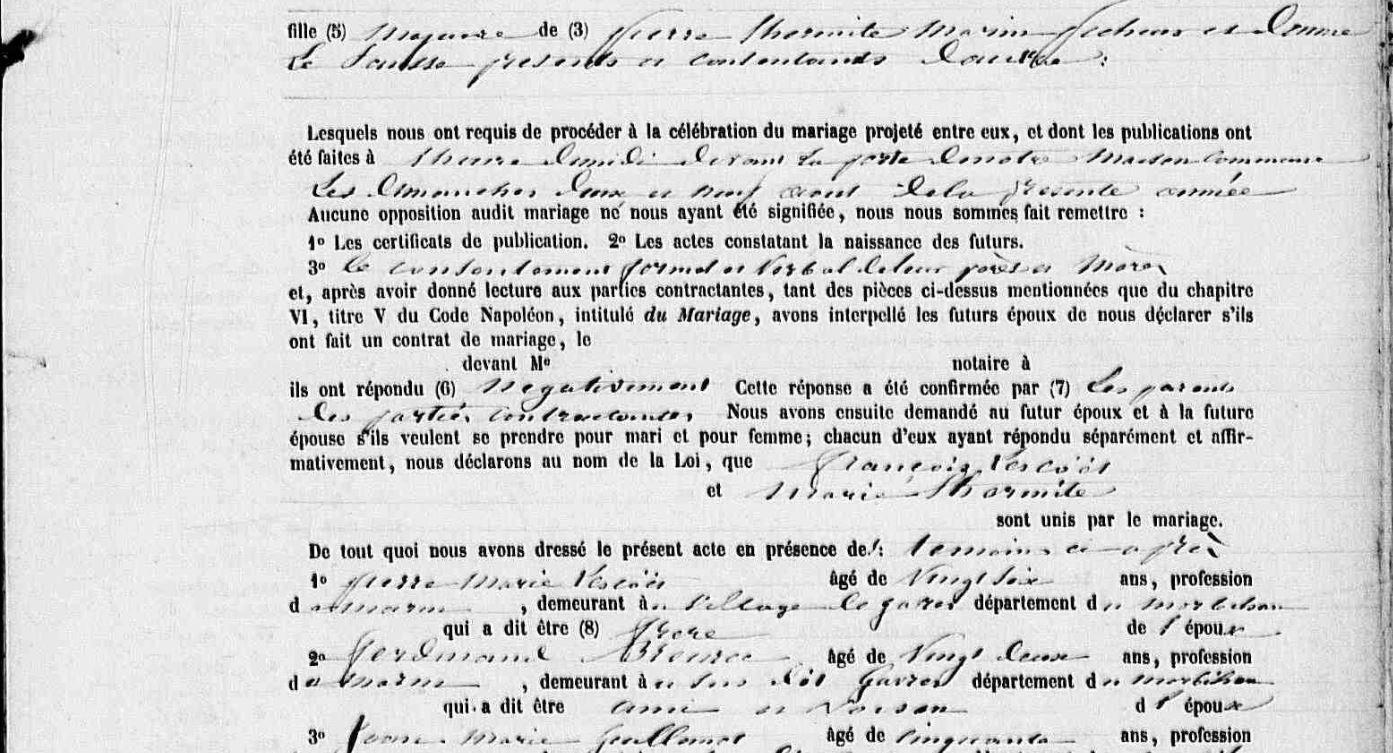 fille (5) Majeure de (3) Pierre Lhermite Marin Pecheur et Denme
Le présents et consentants d'autre :
Lesquels nous ont requis de procéder à la célébration du mariage projeté entre eux, et dont les publications ont
été faites à lheure demidi devant La porte denotre Maison Commune
Les dimanches deux et neuf aout dela presente année
Aucune opposition audit mariage ne nous ayant été signifiée, nous nous sommes fait remettre :
1º Les certificats de publication. 2º Les actes constatant la naissance des futurs.
3º le consentement formel et Verbal deleur pères et Mères
et, après avoir donné lecture aux parties contractantes, tant des pièces ci-dessus mentionnées que du chapitre
VI, titre V du Code Napoléon, intitulé du Mariage, avons interpellé les futurs époux de nous déclarer s'ils
ont fait un contrat de mariage, le
devant Me notaire à
ils ont répondu (6) Negativement Cette réponse a été confirmée par (7) Les parents
des parties contractantes Nous avons ensuite demandé au futur époux et à la future
épouse s'ils veulent se prendre pour mari et pour femme; chacun d'eux ayant répondu séparément et affir-
mativement, nous déclarons au nom de la Loi, que François
et Marie Lhermite
sont unis par le mariage.
De tout quoi nous avons dressé le présent acte en présence des temoins ci-après
1º Pierre Marie âgé de Vingt Six ans, profession
de marin, demeurant à Village de gavres département du morbihan
qui a dit être (8) frere de l'époux
2º Ferdinand âgé de Vingt deux ans, profession
de marin, demeurant à Gavres département du morbihan
qui a dit être ami et Voisin d l'époux
3º Marie âgé de Cinquante ans, profession